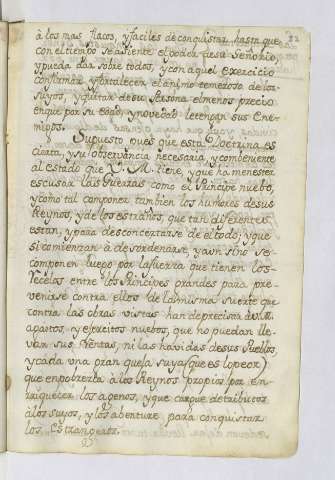 82
à los mas flacos, y faciles de conquistar, hasta que
con el tiempo se asiente el poder de su Señorio,
y pueda dar sobre todos, y con aquel exercicio
confirmar, y fortalecer el animo temeroso de los
suyos, y quitar de su Persona el menos precio
en que por su edad, y novedad le tengan sus Ene-
migos.
Supuesto pues que esta Doctrina es
cierta, y su observancia necesaria, y combeniente
al estado que V. M. tiene, y que ha menester
escusar las Guerras como el Principe nuebo,
y como tal componer tambien los humores de sus
Reynos, y de los estraños, que tan diferentes
estan, y para desconcertarse de el todo, y que
si comienzan à desordenarse, y aun si no se
componen luego por la fuerza que tienen los
Recelos entre los Principes grandes para pre-
venirse contra ellos de la misma suerte que
contra las obras vistas han de precisar à V. M.
a gastos, y exercitos nuebos, que no puedan lle-
var sus Rentas, ni las havidas de sus Pueblos,
y cada una gran queja suya (que es lo peor)
que enpobrezca à los Reynos propios por en-
riquecer los agenos, y que cargue de tributos
à los suyos, y los abenture para conquistar
los Estrangeros.